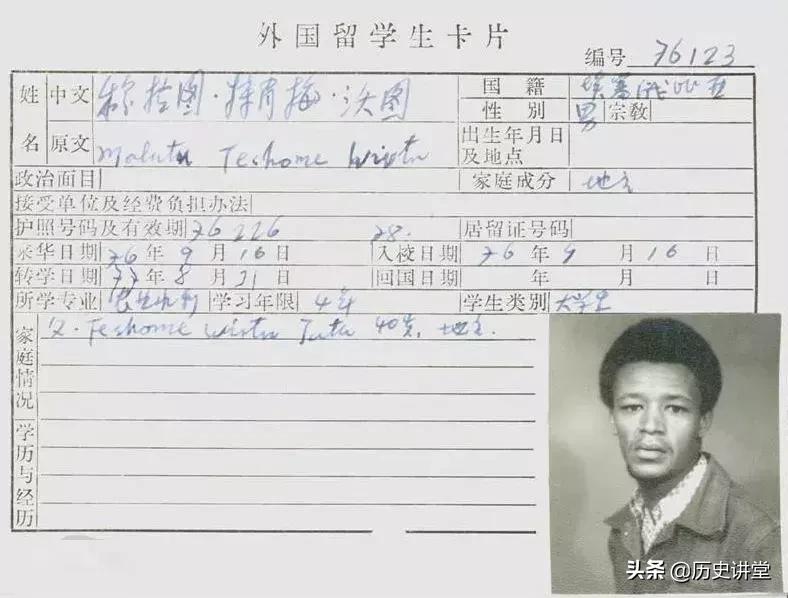 外国留学生卡片
编号 76123
姓名 中文 穆拉图·特肖梅·沃图 国籍 埃塞俄比亚
性别 男 宗教
原文 Mulatu Teshome Wirtu 出生年月日及地点
政治面目 家庭成分 地主
接受单位及经费负担办法
护照号码及有效期 76226 78. 居留证号码
来华日期 76年9月16日 入校日期 76年9月16日
转学日期 77年8月21日 回国日期 年 月 日
所学专业 学习年限 4年 学生类别 大学生
家庭情况 父. Teshome Wirtu 40岁, 地主.
学历与经历
头条 @历史讲堂